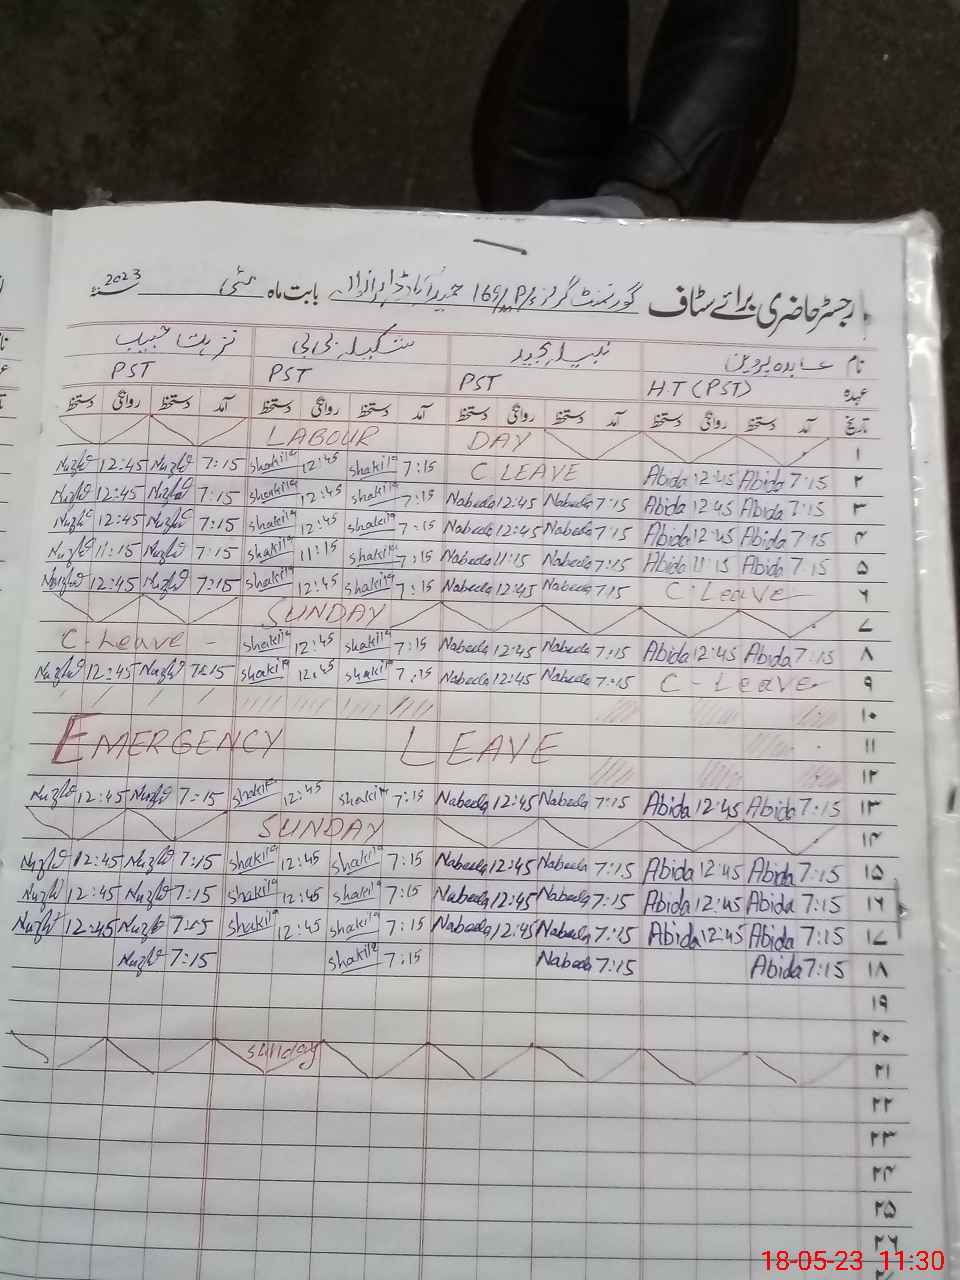 رجسٹر حاضری برائے سٹاف گورنمنٹ گرلز 169/P بابت ماہ مئی 2023
نام عابدہ پروین نبیلہ مجید شکیلہ بی بی نزہت حبیب
عہدہ H.T (PST) PST PST PST
تاریخ آمد دستخط روانگی دستخط آمد دستخط روانگی دستخط آمد دستخط روانگی دستخط آمد دستخط روانگی دستخط
LABOUR DAY ۱
Nuzhat 12:45 Nuzhat 7:15 Shakila 12:45 Shakila 7:15 C LEAVE Abida 12:45 Abida 7:15 ۲
Nuzhat 12:45 Nuzhat 7:15 Shakila 12:45 Shakila 7:15 Nabeela 12:45 Nabeela 7:15 Abida 12:45 Abida 7:15 ۳
Nuzhat 12:45 Nuzhat 7:15 Shakila 12:45 Shakila 7:15 Nabeela 12:45 Nabeela 7:15 Abida 12:45 Abida 7:15 ۴
Nuzhat 11:15 Nuzhat 7:15 Shakila 11:15 Shakila 7:15 Nabeela 11:15 Nabeela 7:15 Abida 11:15 Abida 7:15 ۵
Nuzhat 12:45 Nuzhat 7:15 Shakila 12:45 Shakila 7:15 Nabeela 12:45 Nabeela 7:15 C-Leave ۶
SUNDAY ۷
C-Leave - Shakila 12:45 Shakila 7:15 Nabeela 12:45 Nabeela 7:15 Abida 12:45 Abida 7:15 ۸
Nuzhat 12:45 Nuzhat 7:15 Shakila 12:45 Shakila 7:15 Nabeela 12:45 Nabeela 7:15 C-Leave ۹
۱۰
EMERGENCY LEAVE ۱۱
۱۲
Nuzhat 12:45 Nuzhat 7:15 Shakila 12:45 Shakila 7:15 Nabeela 12:45 Nabeela 7:15 Abida 12:45 Abida 7:15 ۱۳
SUNDAY ۱۴
Nuzhat 12:45 Nuzhat 7:15 Shakila 12:45 Shakila 7:15 Nabeela 12:45 Nabeela 7:15 Abida 12:45 Abida 7:15 ۱۵
Nuzhat 12:45 Nuzhat 7:15 Shakila 12:45 Shakila 7:15 Nabeela 12:45 Nabeela 7:15 Abida 12:45 Abida 7:15 ۱۶
Nuzhat 12:45 Nuzhat 7:15 Shakila 12:45 Shakila 7:15 Nabeela 12:45 Nabeela 7:15 Abida 12:45 Abida 7:15 ۱۷
Nuzhat 7:15 Shakila 7:15 Nabeela 7:15 Abida 7:15 ۱۸
۱۹
۲۰
Sunday ۲۱
۲۲
۲۳
۲۴
۲۵
۲۶
18-05-23 11:30